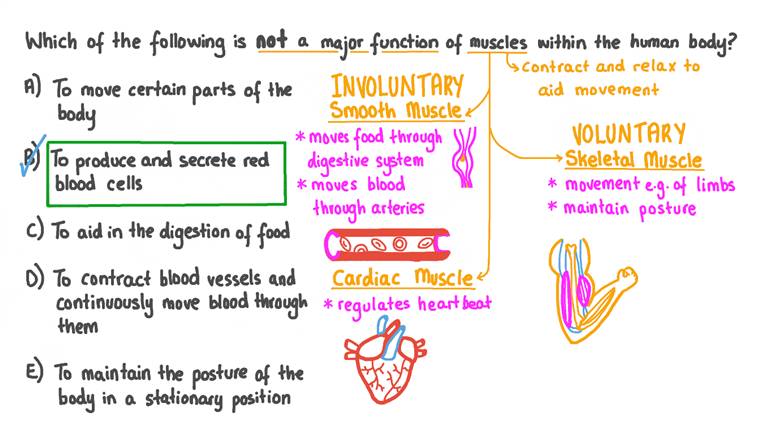 Which of the following is not a major function of muscles within the human body?
A) To move certain parts of the
body
B) To produce and secrete red
blood cells
C) To aid in the digestion of food
D) To contract blood vessels and
continuously move blood through
them
E) To maintain the posture of the
body in a stationary position
INVOLUNTARY
Smooth Muscle
* moves food through
digestive system
* moves blood
through arteries
Cardiac Muscle
* regulates heartbeat
contract and relax to
aid movement
VOLUNTARY
Skeletal Muscle
* movement e.g. of limbs
* maintain posture